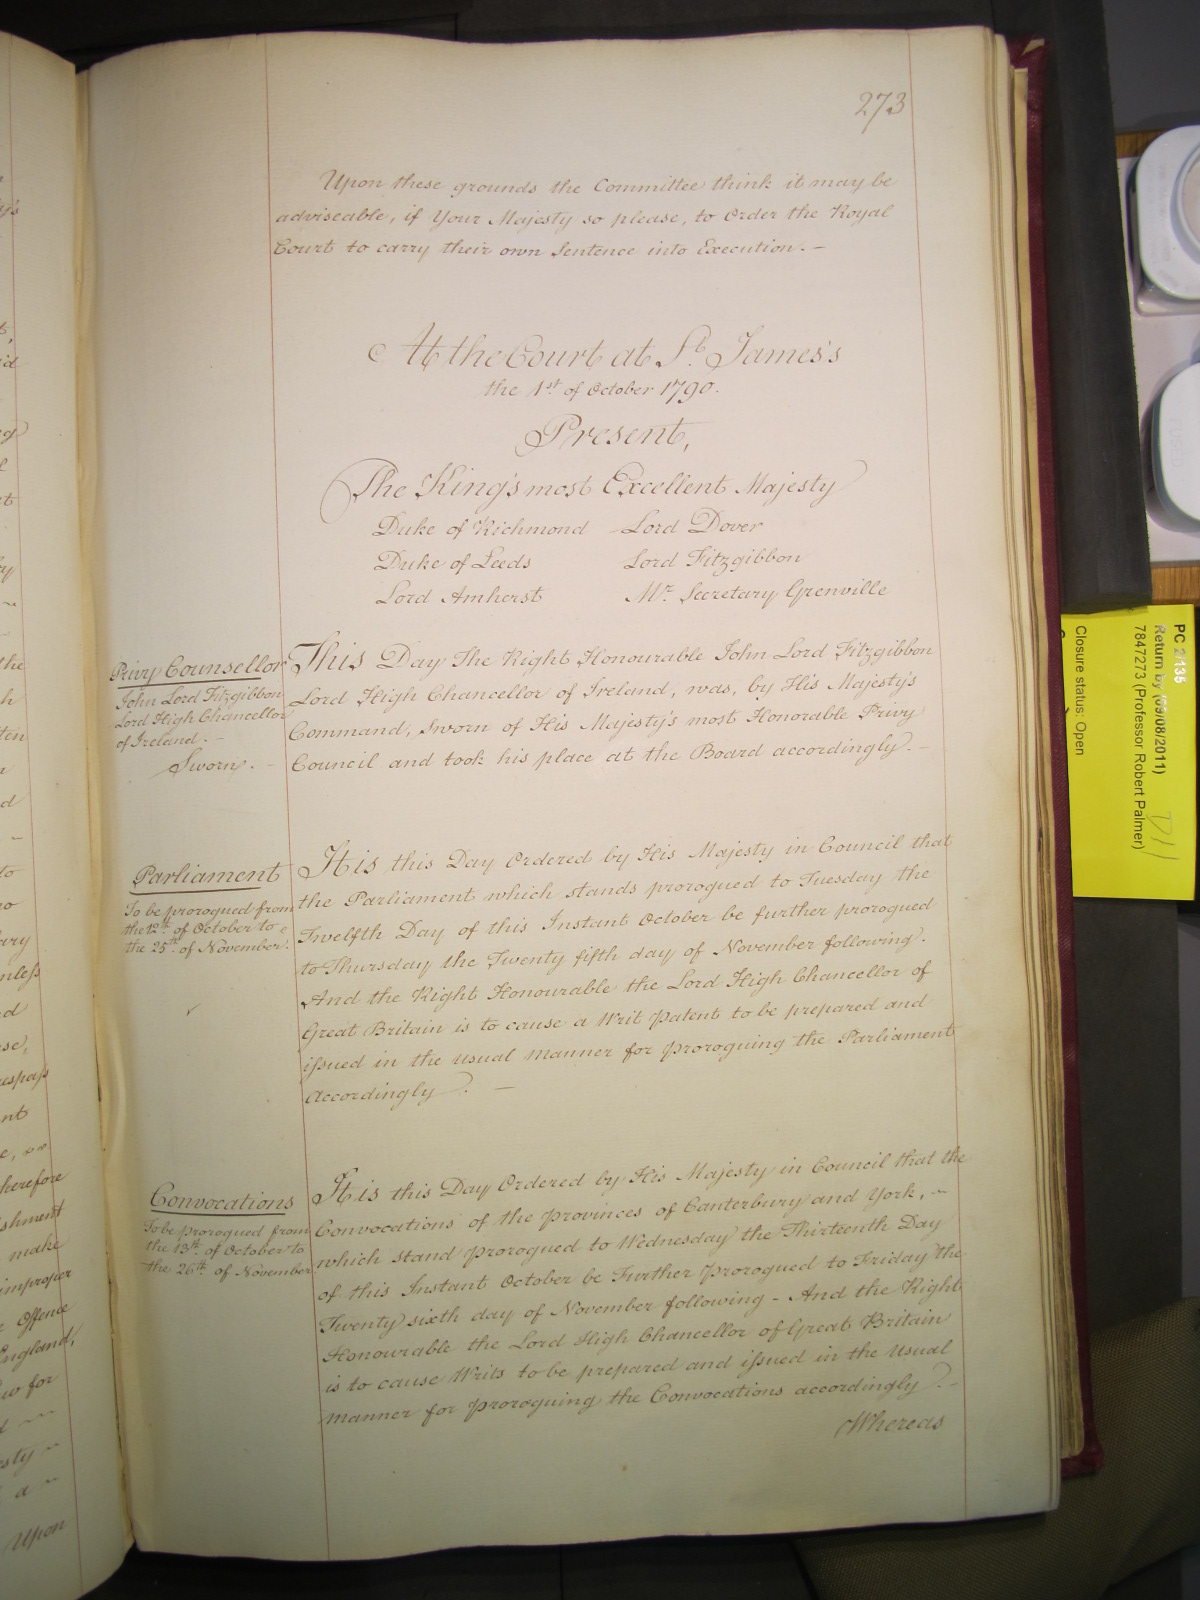 273
Upon these grounds the Committee think it may be
adviseable, if Your Majesty so please, to Order the Royal
Court to carry their own Sentence into Execution. —
At the Court at St. James's
the 1st of October 1790.
Present,
The King's most Excellent Majesty
Duke of Richmond Lord Dover
Duke of Leeds Lord Fitzgibbon
Lord Amherst Mr. Secretary Grenville
Privy Counsellor
John Lord Fitzgibbon
Lord High Chancellor
of Ireland. –
Sworn. –
This Day The Right Honourable John Lord Fitzgibbon
Lord High Chancellor of Ireland, was, by His Majesty's
Command, Sworn of His Majesty's most Honorable Privy
Council and took his place at the Board accordingly. –
Parliament
To be prorogued from
the 12th of October to
the 25th of November.
It is this Day Ordered by His Majesty in Council that
the Parliament which stands prorogued to Tuesday the
Twelfth Day of this Instant October be further prorogued
to Thursday the Twenty fifth day of November following.
And the Right Honourable the Lord High Chancellor of
Great Britain is to cause a Writ Patent to be prepared and
issued in the usual manner for proroguing the Parliament
accordingly. —
Convocations
To be prorogued from
the 13th of October to
the 26th of November
It is this Day Ordered by His Majesty in Council that the
Convocations of the Provinces of Canterbury and York, ~
which stand prorogued to Wednesday the Thirteenth Day
of this Instant October be Further prorogued to Friday the
Twenty sixth day of November following – And the Right
Honourable the Lord High Chancellor of Great Britain
is to cause Writs to be prepared and issued in the usual
manner for proroguing the Convocations accordingly. –
Whereas
PC 2/135
Return by (09/08/2011)
7847273 (Professor Robert Palmer)
Closure status: Open
D11
the
ten
to
ary
unless
nt
herefore
ishment
make
improper
Offence
England,
for
a
Upon